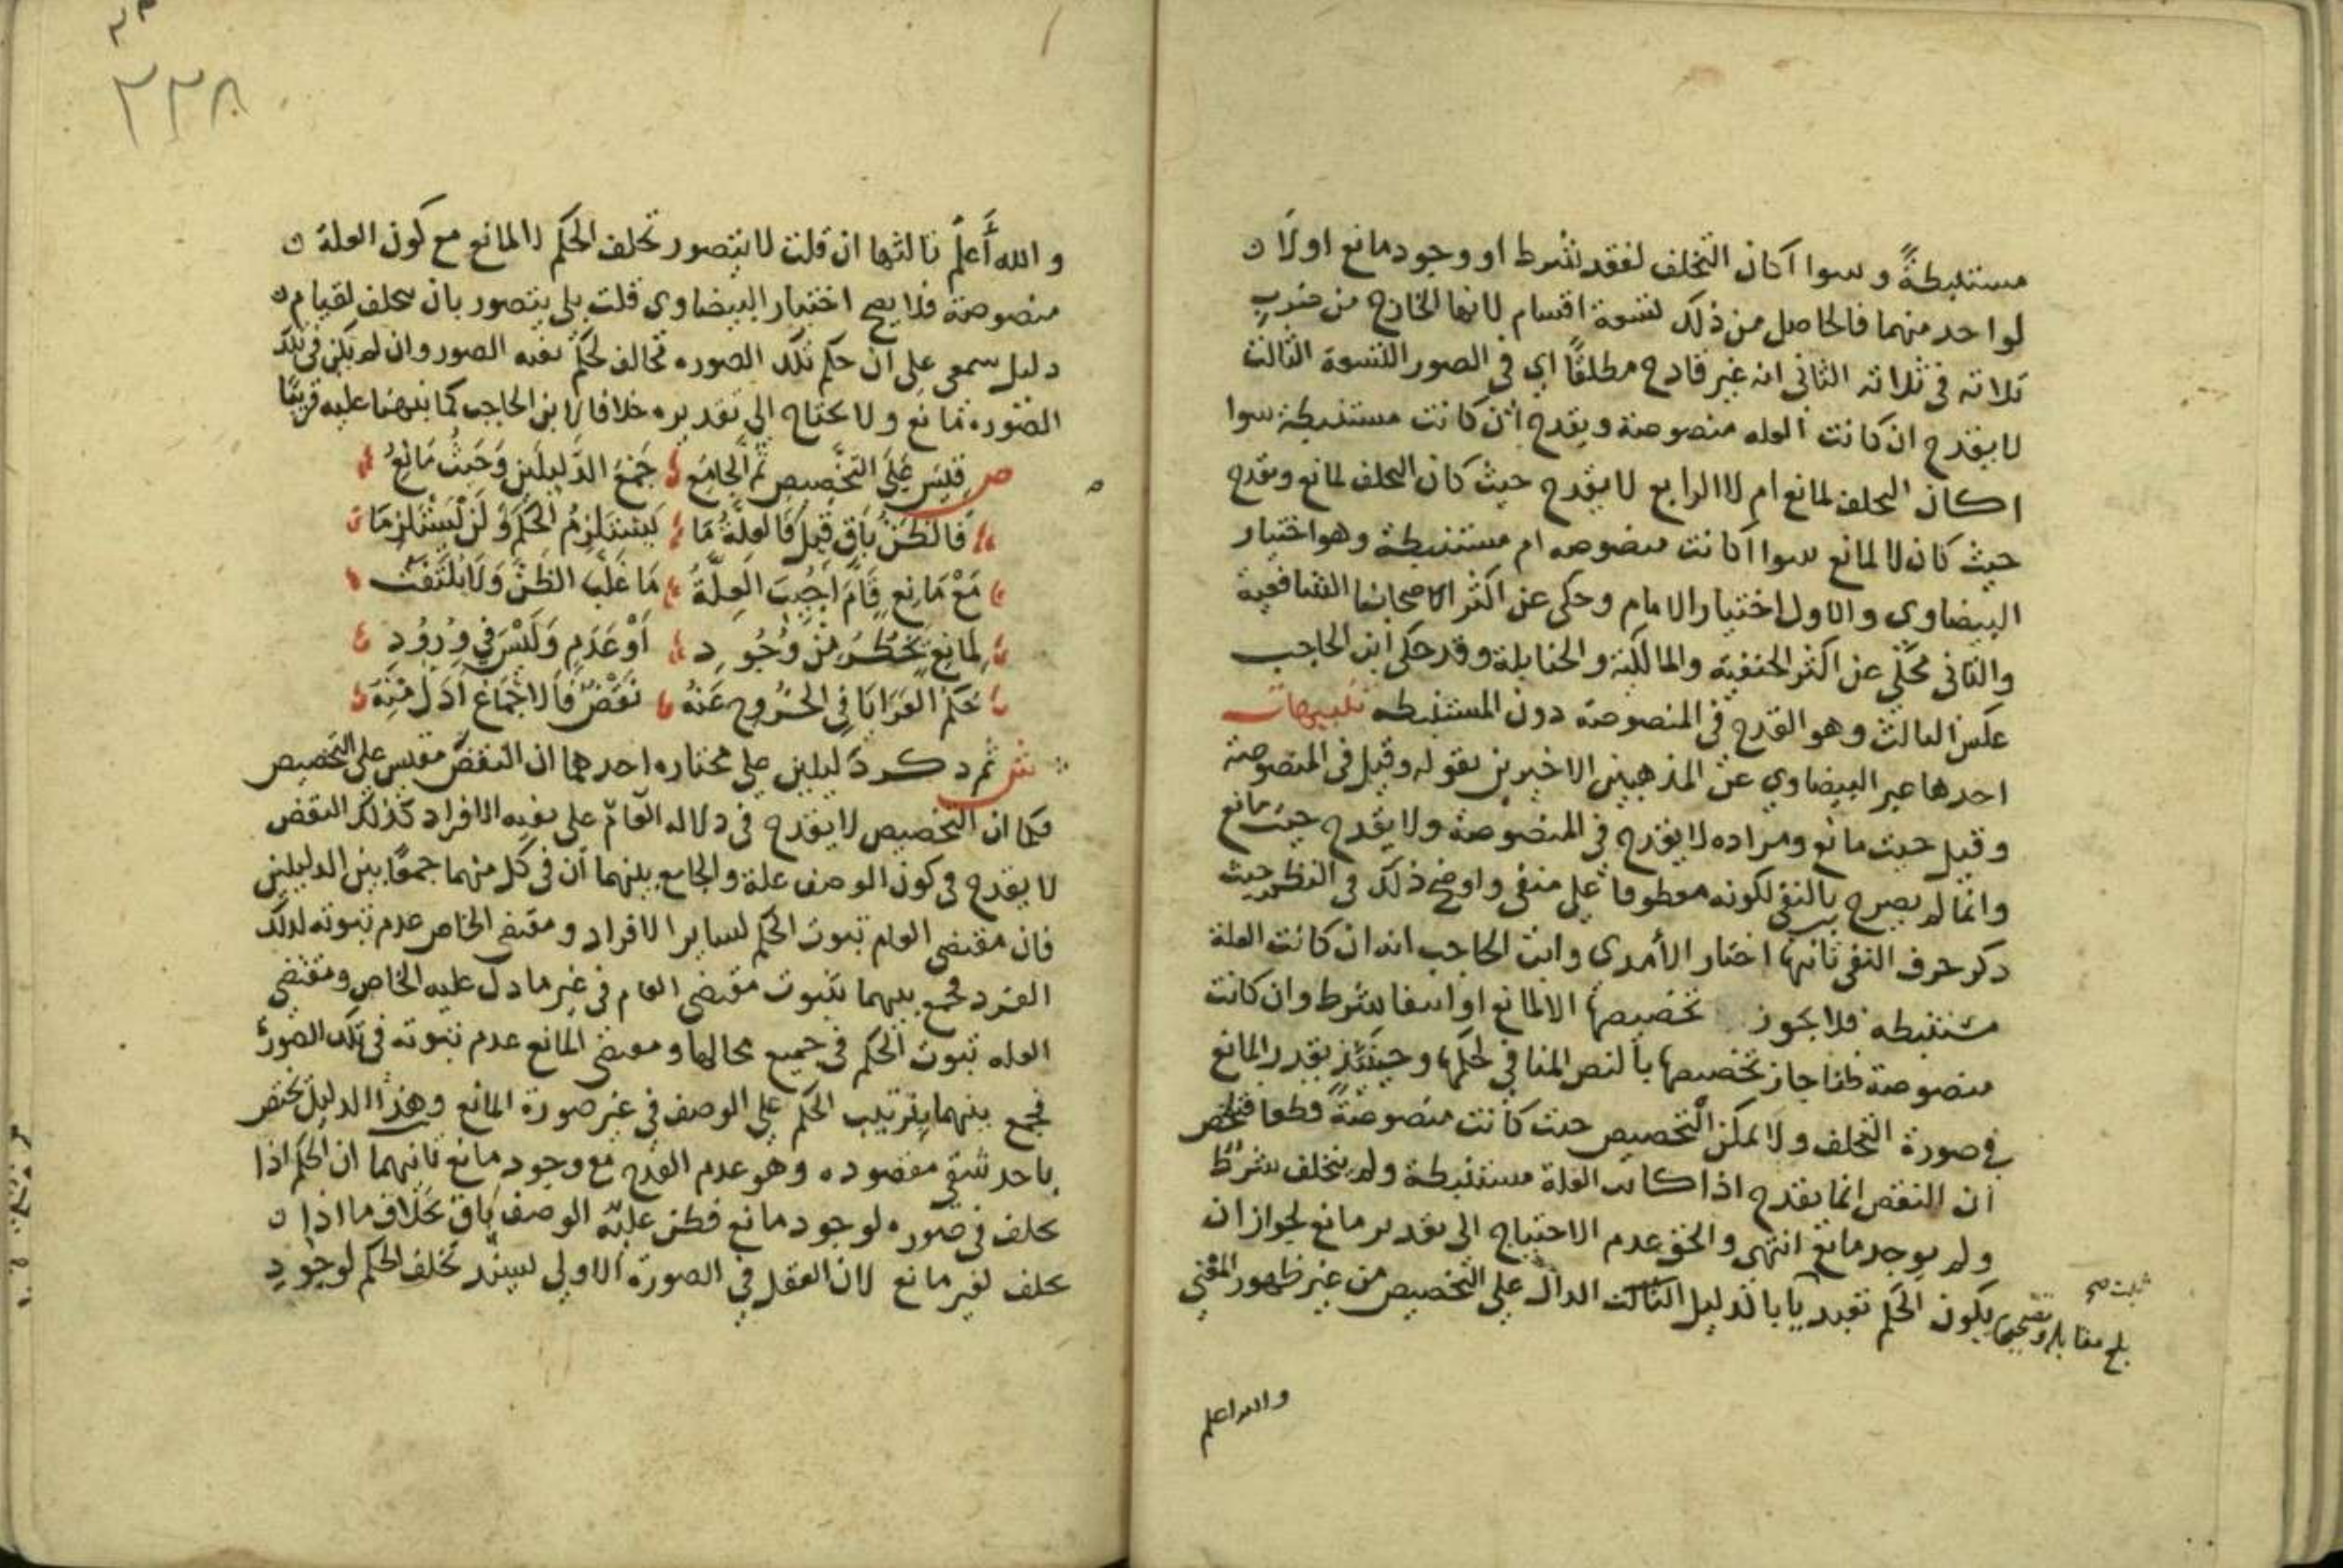 مستنبطةً وسوا اكان التخلف لفقد شرط او وجود مانع او لا
لواحد منهما فالحاصل من ذلك تسعة اقسام لانها الخارج من ضرب
ثلاثة في ثلاثة الثاني انه غير قادح مطلقًا اي في الصور التسعة الثالث
لا يقدح ان كانت العله منصوصة ويقدح ان كانت مستنبطة سوا
اكان التخلف لمانع ام لا الرابع لا يقدح حيث كان التخلف لمانع ويقدح
حيث كان لا لمانع سوا اكانت منصوصه ام مستنبطة وهو اختيار
البيضاوي والاول اختيار الامام وحكي عن اكثر اصحابنا الشافعية
والثاني محكي عن اكثر الحنفية والمالكية والحنابلة وقد حكى ابن الحاجب
عكس الثالث وهو القدح في المنصوصة دون المستنبطه تنبيهات
احدها عبر البيضاوي عن المذهبين الاخيرين بقوله وقيل في المنصوصة
وقيل حيث مانع ومراده لا يقدح في المنصوصة ولا يقدح حيث مانع
وانما لم يصرح بالنفي لكونه معطوفا على منفي واوضح ذلك في النظم حيث
ذكر حرف النفي ثانيها اختار الآمدي وابن الحاجب انه ان كانت العلة
مستنبطه فلا يجوز تخصيصها الا لمانع او انتفا شرط وان كانت
منصوصة ظنا جاز تخصيصها بالنص المنافي لحكمها وحينئذٍ يقدر المانع
في صورة التخلف ولا يمكن التخصيص حيث كانت منصوصةً قطعا فتلخص
ان النقض انما يقدح اذا كانت العلة مستنبطة ولم يتخلف شرط
ولم يوجد مانع انتهى والحق عدم الاحتياج الى تقدير مانع لجواز ان
يكون الحكم تعبديا بالدليل الثالث الدال على التخصيص من غير ظهور المقتضي
بلغ مقابلة وتصحيحا
والله اعلم
٢٣٨
والله أعلم ثالثها ان قلت لا يتصور تخلف الحكم لا لمانع مع كون العلة
منصوصة فلا يصح اختيار البيضاوي قلت بلى يتصور بان يتخلف لقيام
دليل سمعي على ان حكم تلك الصوره مخالف لحكم بقيه الصور وان لم يكن في تلك
الصوره مانع ولا يحتاج الى تقديره خلافا لابن الحاجب كما نبهنا عليه قريبًا
ص قِيسَ عَلَى التَّخْصِيصِ ثُمَّ الجَامِعُ جَمْعُ الدَّلِيلَينِ وَحَيثُ مَانِعُ
فَالظَّنُّ بَاقٍ قِيلَ فَالعِلَّةُ مَا يَسْتَلْزِمُ الحُكْمَ وَلَنْ يَسْتَلْزِمَا
مَعْ مَانِعٍ قَامَ أُجِيبَ العِلَّةُ مَا غَلَبَ الظَّنَّ وَلَا يُلْتَفَتُ
لِمَانِعٍ يَخْطُرُ مِنْ وُجُودِ أَوْ عَدَمٍ وَلَيْسَ فِي وُرُودِ
حُكْمِ العَرَايَا فِي الخُرُوجِ عَنْهُ نَقْضٌ فَالاجْمَاعُ أَدَلُّ مِنْهُ
ش ثم ذكر دليلين على مختاره احدهما ان النقض مقيس على التخصيص
فكما ان التخصيص لا يقدح في دلاله العامّ على بقيه الافراد كذلك النقض
لا يقدح في كون الوصف علة والجامع بينهما أن في كل منهما جمعًا بين الدليلين
فان مقتضى العام ثبوت الحكم لساير الافراد ومقتضى الخاص عدم ثبوته لذلك
الفرد فجمع بينهما بثبوت مقتضى العام في غير ما دل عليه الخاص ومقتضى
العله ثبوت الحكم في جميع محالها ومقتضى المانع عدم ثبوته في تلك الصورة
فجمع بينهما بترتيب الحكم على الوصف في غير صورة المانع وهذا الدليل يختص
باحد شقي مقصوده وهو عدم القدح مع وجود مانع ثانيهما ان الحكم اذا
تخلف في صوره لوجود مانع فظن عليّة الوصف باق بخلاف ما اذا
تخلف لغير مانع لان العقل في الصورة الاولى يسند تخلف الحكم لوجود